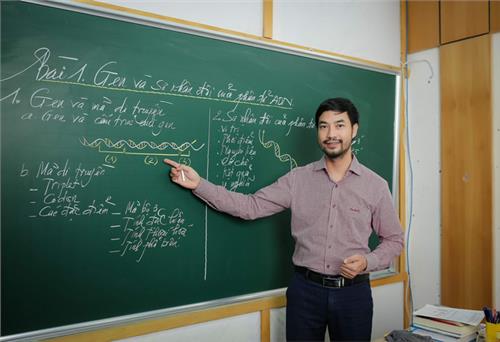 Bài 1. Gen và Sự nhân đôi của phân tử ADN
1. Gen và mã di truyền
a. Gen và cấu trúc của gen
(1) (2) (3)
b. Mã di truyền
- Triplet
- Côđon
- Các đặc điểm
- Mã bộ 3
- Tính đặc hiệu
- Tính thoái hóa
- Tính phổ biến
2. Sự nhân đôi của phân tử
- Vị trí
- Thời điểm
- Nguyên tắc
- Cơ chế
- Kết quả
- Ý nghĩa